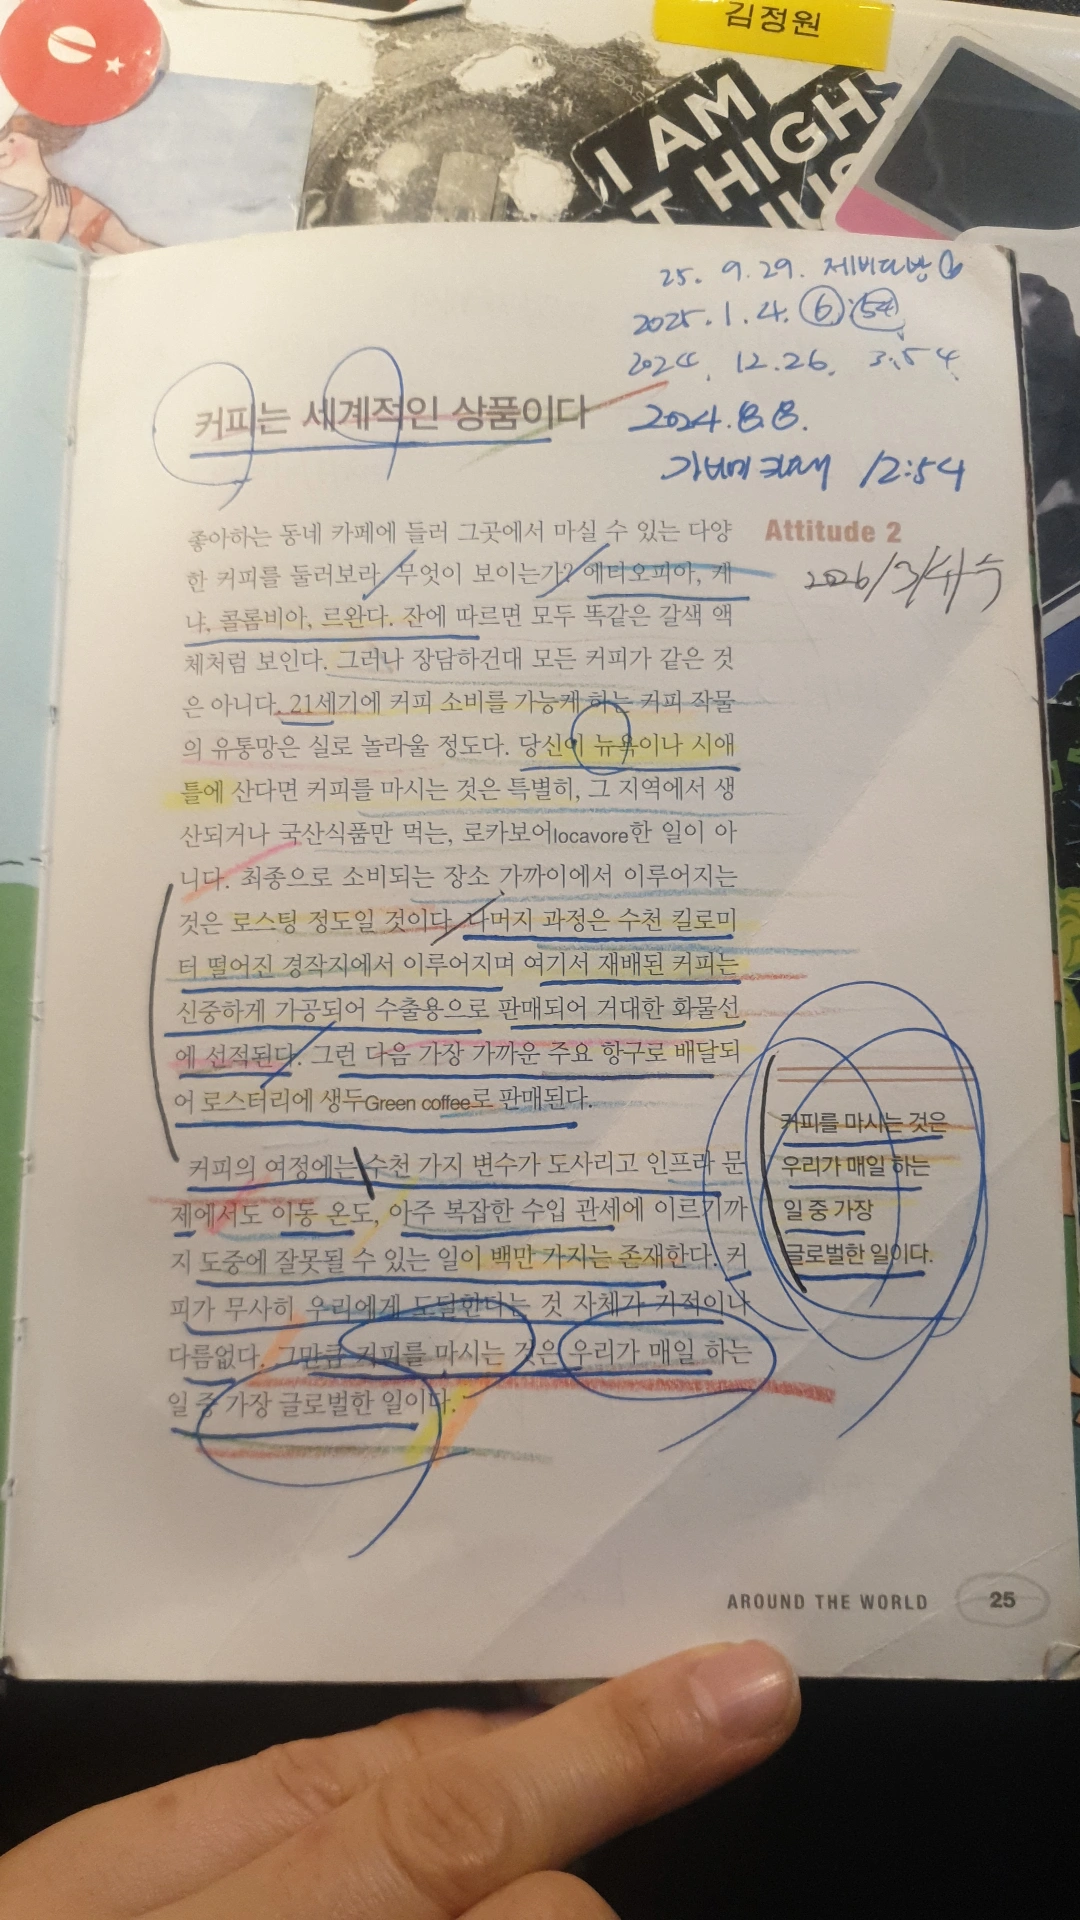 김정원
I AM
T HIGH
25. 9. 29. 제비다방
2025. 1. 4. 6:54
2024. 12. 26. 3:54
커피는 세계적인 상품이다
2024. 8. 8.
12:54
좋아하는 동네 카페에 들러 그곳에서 마실 수 있는 다양
Attitude 2
한 커피를 둘러보라. 무엇이 보이는가? 에티오피아, 케
2026/3/4/수
냐, 콜롬비아, 르완다. 잔에 따르면 모두 똑같은 갈색 액
체처럼 보인다. 그러나 장담하건대 모든 커피가 같은 것
은 아니다. 21세기에 커피 소비를 가능케 하는 커피 작물
의 유통망은 실로 놀라울 정도다. 당신이 뉴욕이나 시애
틀에 산다면 커피를 마시는 것은 특별히, 그 지역에서 생
산되거나 국산식품만 먹는, 로카보어locavore한 일이 아
니다. 최종으로 소비되는 장소 가까이에서 이루어지는
것은 로스팅 정도일 것이다. 나머지 과정은 수천 킬로미
터 떨어진 경작지에서 이루어지며 여기서 재배된 커피는
신중하게 가공되어 수출용으로 판매되어 거대한 화물선
에 선적된다. 그런 다음 가장 가까운 주요 항구로 배달되
어 로스터리에 생두Green coffee로 판매된다.
커피의 여정에는 수천 가지 변수가 도사리고 인프라 문
제에서도 이동 온도, 아주 복잡한 수입 관세에 이르기까
지 도중에 잘못될 수 있는 일이 백만 가지는 존재한다. 커
피가 무사히 우리에게 도달한다는 것 자체가 기적이나
다름없다. 그만큼 커피를 마시는 것은 우리가 매일 하는
일 중 가장 글로벌한 일이다.
커피를 마시는 것은
우리가 매일 하는
일 중 가장
글로벌한 일이다.
AROUND THE WORLD 25